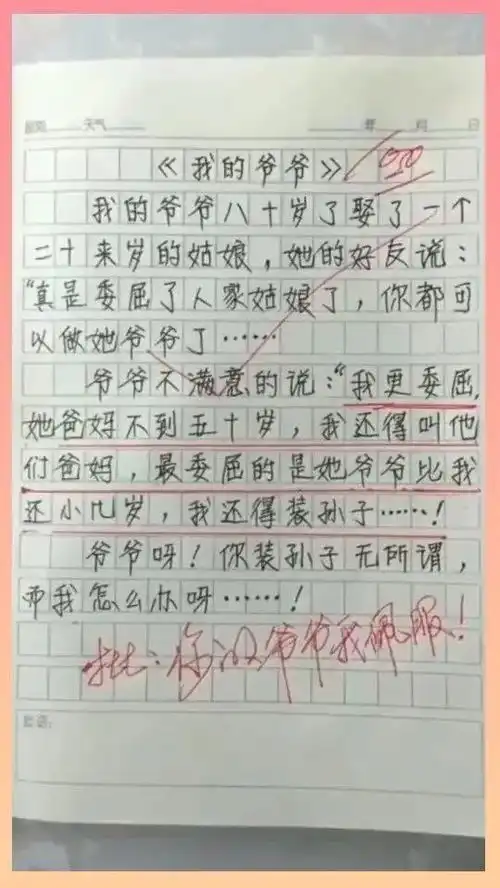 星期 天气 年 月 日
《我的爷爷》
我的爷爷八十岁了娶了一个
二十来岁的姑娘，她的好友说：
“真是委屈了人家姑娘了，你都可
以做她爷爷了……
爷爷不满意的说：“我更委屈,
她爸妈不到五十岁，我还得叫他
们爸妈，最委屈的是她爷爷比我
还小几岁，我还得装孙子……！
爷爷呀！你装孙子无所谓，
而我怎么办呀……！
批：你的爷爷我佩服！
批语：